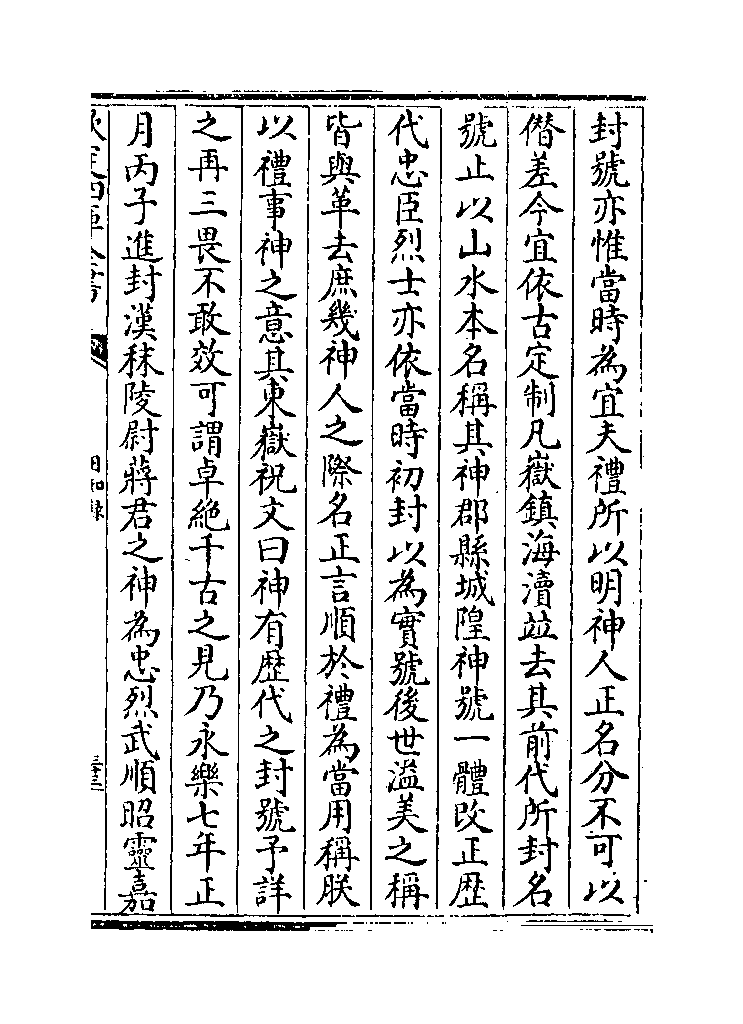 封號亦惟當時為宜夫禮所以明神人正名分不可以
僭差今宜依古定制凡嶽鎮海瀆竝去其前代所封名
號止以山水本名稱其神郡縣城隍神號一體改正歴
代忠臣烈士亦依當時初封以為實號後世溢美之稱
皆與革去庶幾神人之際名正言順於禮為當用稱朕
以禮事神之意其東嶽祝文曰神有歴代之封號予詳
之再三畏不敢效可謂卓絶千古之見乃永樂七年正
月丙子進封漢秣陵尉蔣君之神為忠烈武順昭靈嘉
欽定四庫全書
日知録